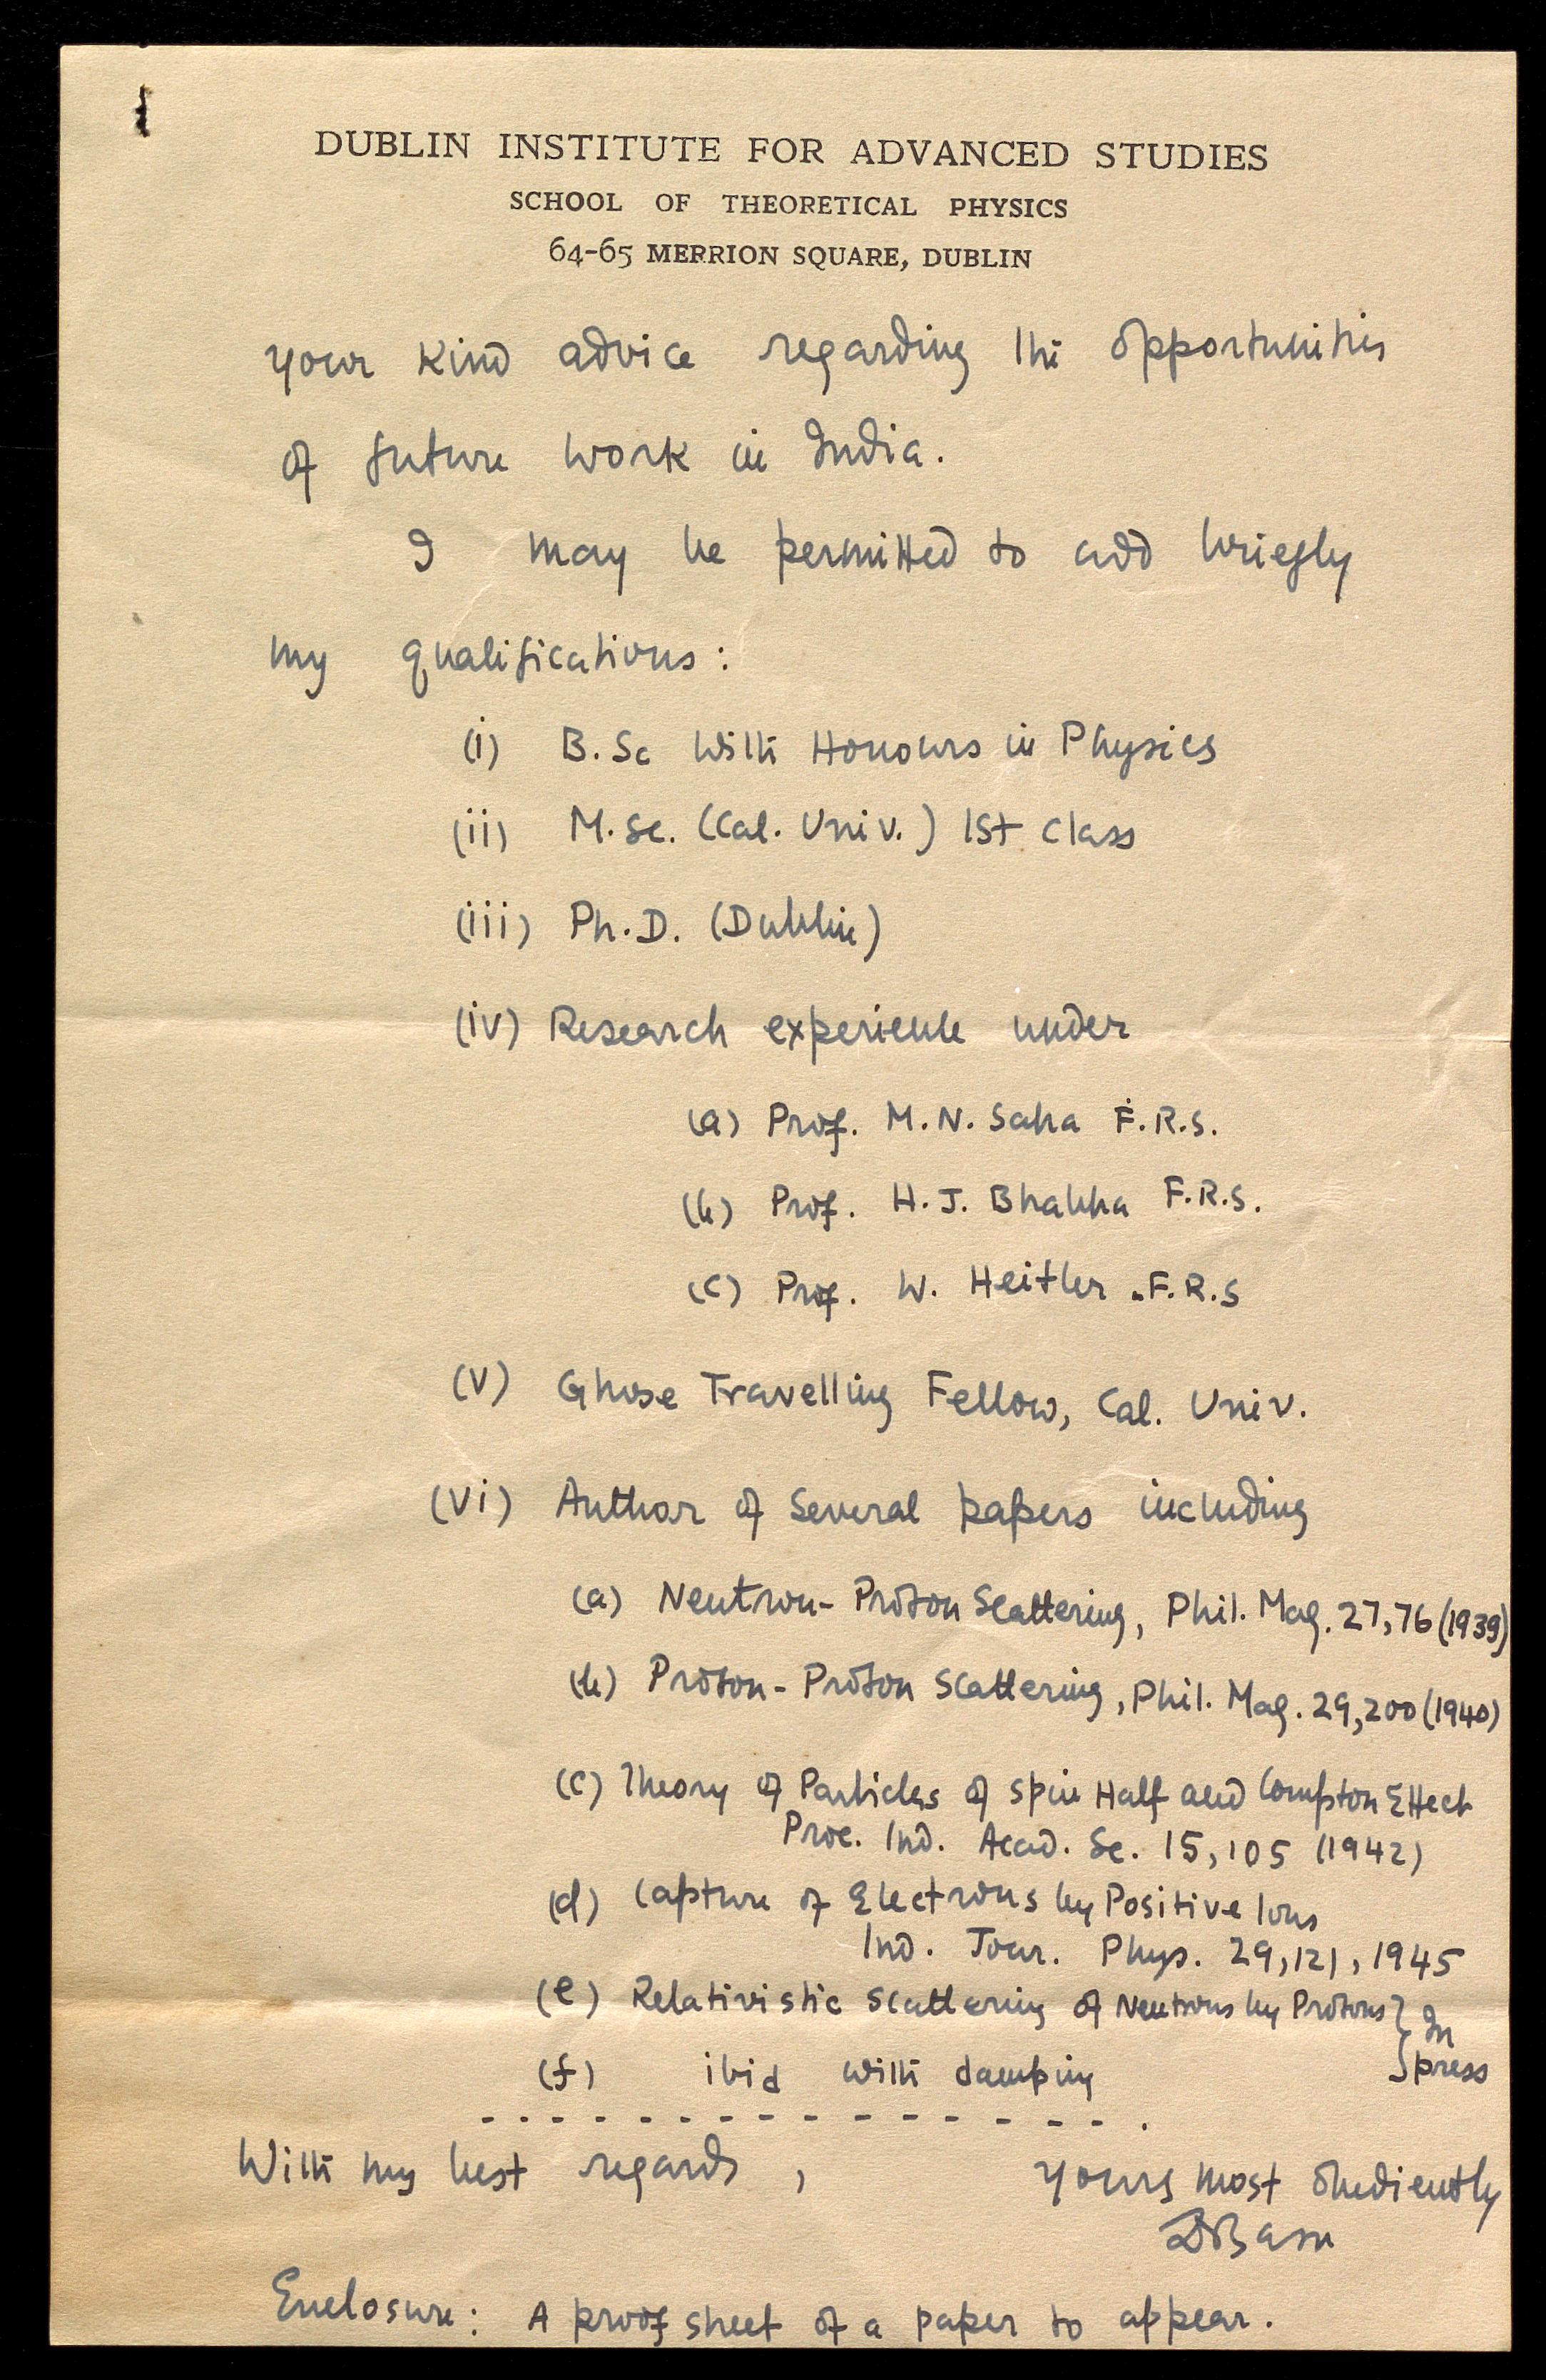 DUBLIN INSTITUTE FOR ADVANCED STUDIES
SCHOOL OF THEORETICAL PHYSICS
64-65 MERRION SQUARE, DUBLIN
your kind advice regarding the opportunities
of future work in India.
I may be permitted to add briefly
my qualifications:
(i) B.Sc with Honours in Physics
(ii) M.Sc. (Cal. Univ.) 1st class
(iii) Ph.D. (Dublin)
(iv) Research experience under
(a) Prof. M.N. Saha F.R.S.
(b) Prof. H.J. Bhabha F.R.S.
(c) Prof. W. Heitler F.R.S
(v) Ghose Travelling Fellow, Cal. Univ.
(vi) Author of Several papers including
(a) Neutron-Proton Scattering, Phil. Mag. 27, 76 (1939)
(b) Proton-Proton Scattering, Phil. Mag. 29, 200 (1940)
(c) Theory of Particles of Spin Half and Compton Effect
Proc. Ind. Acad. Sc. 15, 105 (1942)
(d) Capture of Electrons by Positive Ions
Ind. Jour. Phys. 29, 121, 1945
(e) Relativistic Scattering of Neutrons by Protons } In
(f) ibid with damping } press
With my best regards, Yours most obediently
D Basu
Enclosure: A proof sheet of a paper to appear.